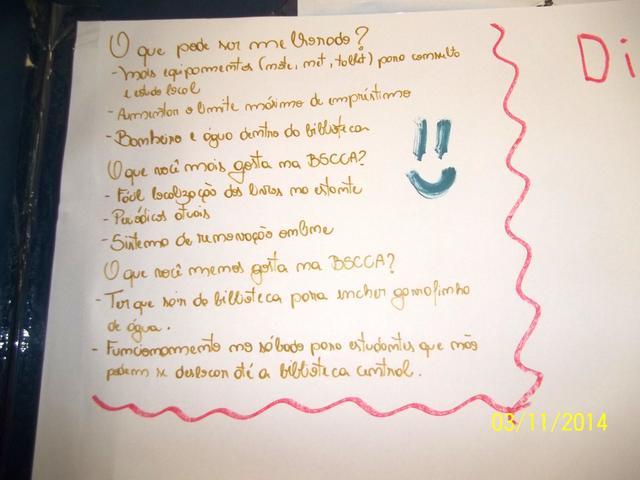 O que pode ser melhorado?
- Mais equipamentos (note, net, tablet) para consulta
e estudo local
- Aumentar o limite máximo de empréstimo
- Banheiro e água dentro da biblioteca
O que você mais gosta na BSCCA?
- Fácil localização dos livros na estante
- Periódicos atuais
- Sistema de renovação online
O que você menos gosta na BSCCA?
- Ter que sair da biblioteca para encher garrafinha
de água.
- Funcionamento no sábado para estudantes que não
podem se deslocar até a biblioteca central.
Di
03/11/2014